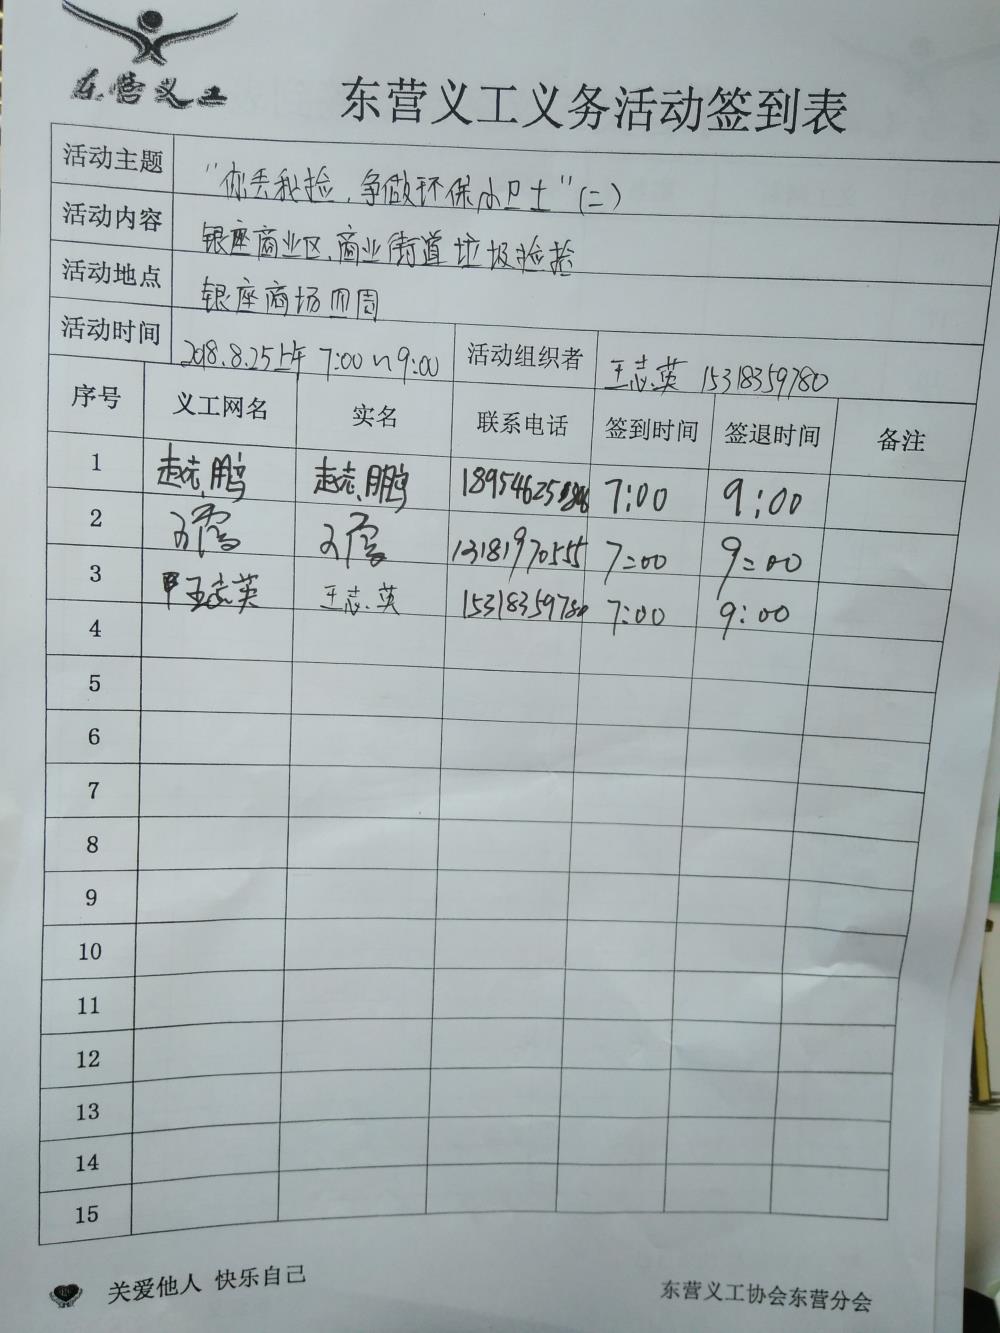 东营义工
东营义工义务活动签到表
活动主题 "你丢我捡,争做环保小卫士"(二)
活动内容 银座商业区、商业街道垃圾捡拾
活动地点 银座商场四周
活动时间 2018.8.25上午 7:00~9:00 活动组织者 王志英 15318359780
序号 义工网名 实名 联系电话 签到时间 签退时间 备注
1 赵志鹏 赵志鹏 18954625 7:00 9:00
2 13181970555 7:00 9:00
3 王志英 王志英 15318359780 7:00 9:00
4
5
6
7
8
9
10
11
12
13
14
15
关爱他人 快乐自己
东营义工协会东营分会